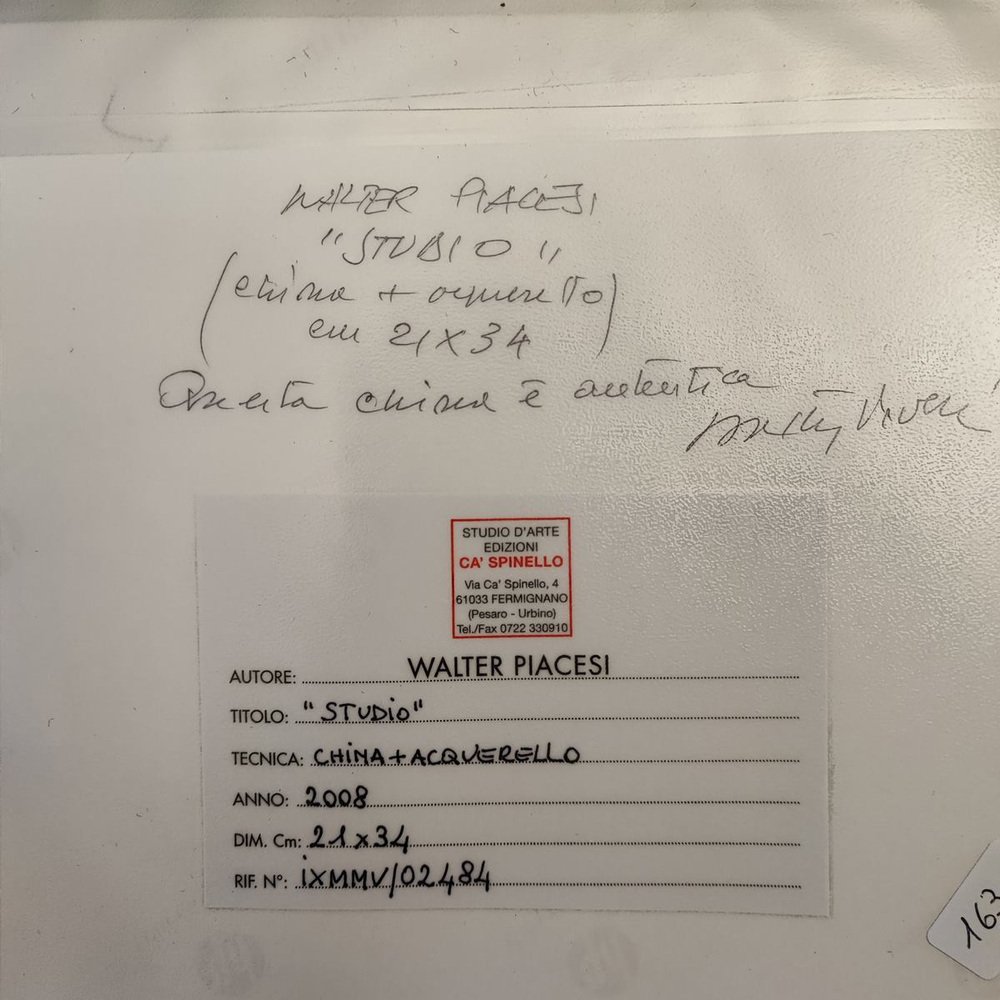 WALTER PIACESI
"STUDIO"
(china + acquerello)
cm 21x34
Questa china è autentica
STUDIO D'ARTE
EDIZIONI
CA' SPINELLO
Via Ca' Spinello, 4
61033 FERMIGNANO
(Pesaro - Urbino)
Tel./Fax 0722 330910
AUTORE: WALTER PIACESI
TITOLO: "STUDiO"
TECNICA: CHiNA+ACQUERELLO
ANNO: 2008
DIM. Cm: 21x34
RIF. N°: iXMMV/02484